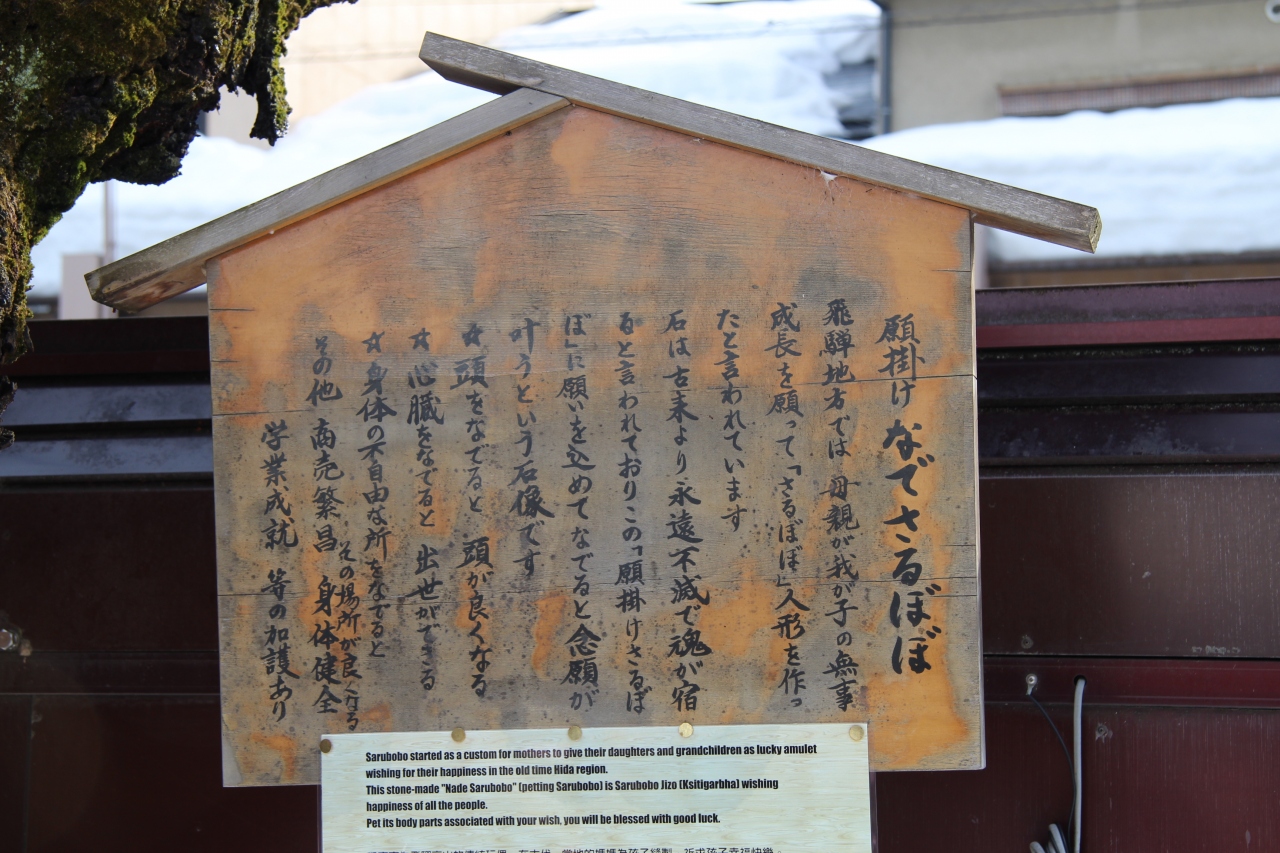 願掛け なでさるぼぼ
飛騨地方では 母親が我が子の無事
成長を願って「さるぼぼ」人形を作っ
たと言われています
石は古来より永遠不滅で魂が宿
ると言われておりこの「願掛けさるぼ
ぼ」に願いを込めてなでると念願が
叶うという石像です
☆頭をなでると 頭が良くなる
☆心臓をなでると 出世ができる
☆身体の不自由な所をなでると
その場所が良くなる
その他 商売繁昌 身体健全
学業成就 等の加護あり
Sarubobo started as a custom for mothers to give their daughters and grandchildren as lucky amulet
wishing for their happiness in the old time Hida region.
This stone-made "Nade Sarubobo" (petting Sarubobo) is Sarubobo Jizo (Ksitigarbha) wishing
happiness of all the people.
Pet its body parts associated with your wish, you will be blessed with good luck.